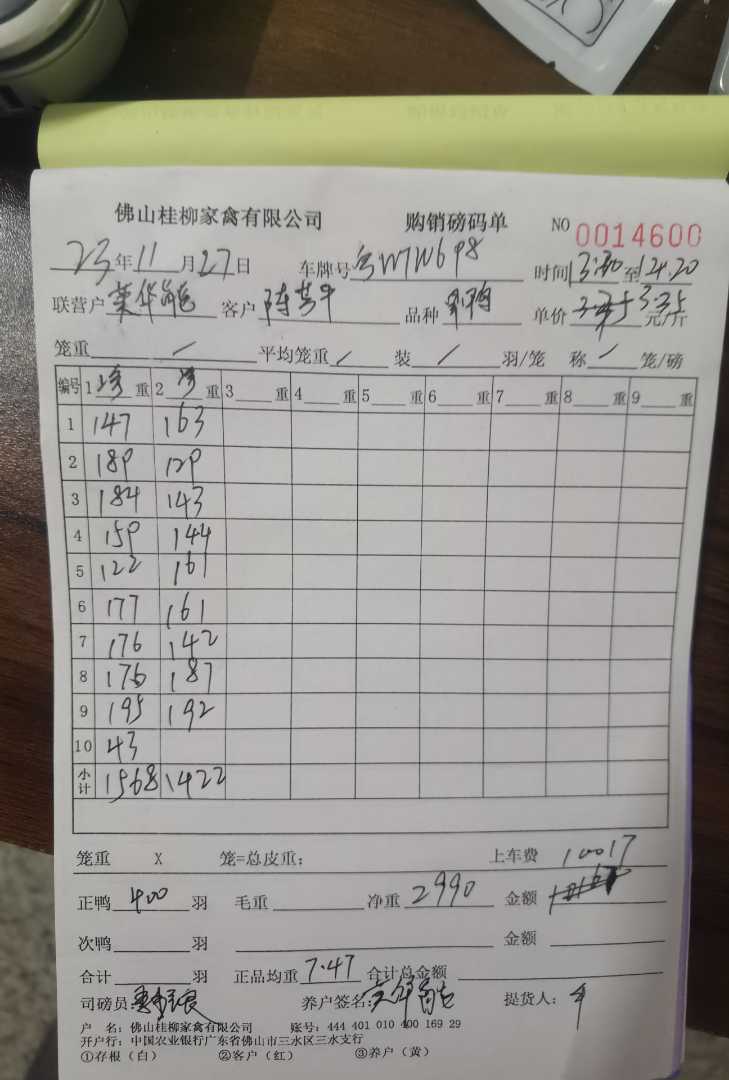 佛山桂柳家禽有限公司 购销磅码单 NO 0014600
23年11月27日 车牌号 时间13:30至14.20
联营户 客户 品种 单价 3.35 元/斤
笼重 / 平均笼重 / 装 / 羽/笼 称 / 笼/磅
编号 1 重 2 重 3 重 4 重 5 重 6 重 7 重 8 重 9 重
1 147 163
2 189 129
3 184 143
4 159 144
5 122 161
6 177 161
7 176 142
8 176 187
9 195 192
10 43
小计 1568 1422
笼重 X 笼=总皮重: 上车费 10017
正鸭 400 羽 毛重 净重 2990 金额
次鸭 羽 金额
合计 羽 正品均重 7.47 合计总金额
司磅员: 养户签名: 提货人:
户 名: 佛山桂柳家禽有限公司 账号: 444 401 010 400 169 29
开户行: 中国农业银行广东省佛山市三水区三水支行
①存根(白) ②客户(红) ③养户(黄)